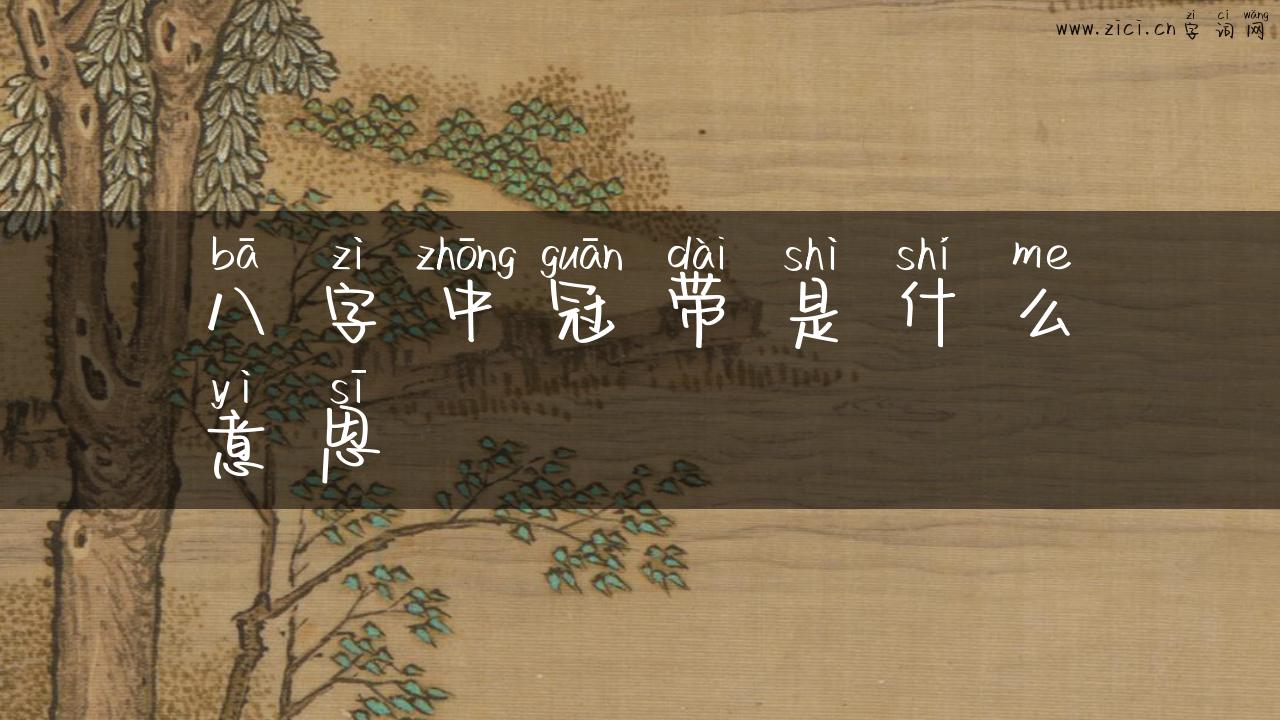 zì cí wǎng
www.zici.cn 字词网
bā zì zhōng guān dài shì shí me
八字中冠带是什么
yì sī
意思